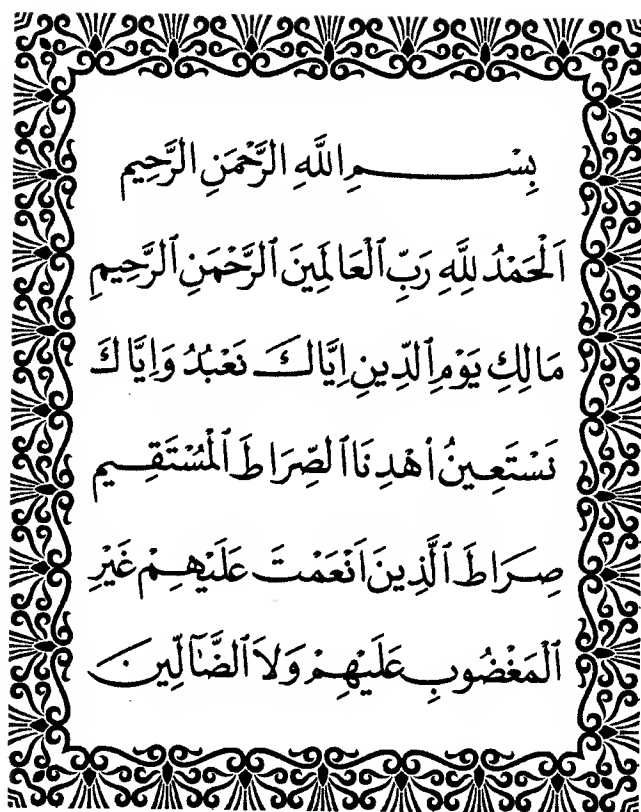 بِسْــــــمِ اللَّهِ الرَّحْمَنِ الرَّحِيم
اَلْحَمْدُ لِلَّهِ رَبِّ ٱلْعَالَمِينَ ٱلرَّحْمَنِ ٱلرَّحِيمِ
مَالِكِ يَوْمِ ٱلدِّينِ اِيَّاكَ نَعْبُدُ وَاِيَّاكَ
نَسْتَعِينُ ٱهْدِنَا ٱلصِّرَاطَ ٱلْمُسْتَقِيم
صِرَاطَ ٱلَّذِينَ اَنْعَمْتَ عَلَيْهِمْ غَيْرِ
ٱلْمَغْضُوبِ عَلَيْهِمْ وَلاَ ٱلضَّآلِّينَ